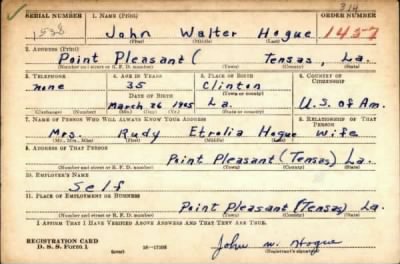 314
SERIAL NUMBER 1. NAME (Print) ORDER NUMBER
John Walter Hogue 1457
(First) (Middle) (Last)
2. ADDRESS (Print)
Point Pleasant ( Tensas, La.
(Number and street or R. F. D. number) (Town) (County) (State)
3. TELEPHONE 4. AGE IN YEARS 5. PLACE OF BIRTH 6. COUNTRY OF CITIZENSHIP
none 35 Clinton
DATE OF BIRTH (Town or county)
March 26 1905 La. U.S. of Am.
(Exchange) (Number) (Mo.) (Day) (Yr.) (State or country)
7. NAME OF PERSON WHO WILL ALWAYS KNOW YOUR ADDRESS 8. RELATIONSHIP OF THAT PERSON
Mrs. Rudy Etrolia Hogue Wife
(Mr., Mrs., Miss) (First) (Middle) (Last)
9. ADDRESS OF THAT PERSON
Point Pleasant (Tensas) La.
(Number and street or R. F. D. number) (Town) (County) (State)
10. EMPLOYER'S NAME
Self
11. PLACE OF EMPLOYMENT OR BUSINESS
Point Pleasant (Tensas) La.
(Number and street or R. F. D. number) (Town) (County) (State)
I AFFIRM THAT I HAVE VERIFIED ABOVE ANSWERS AND THAT THEY ARE TRUE.
REGISTRATION CARD
D. S. S. Form 1 (over) 16—17105 John W. Hogue